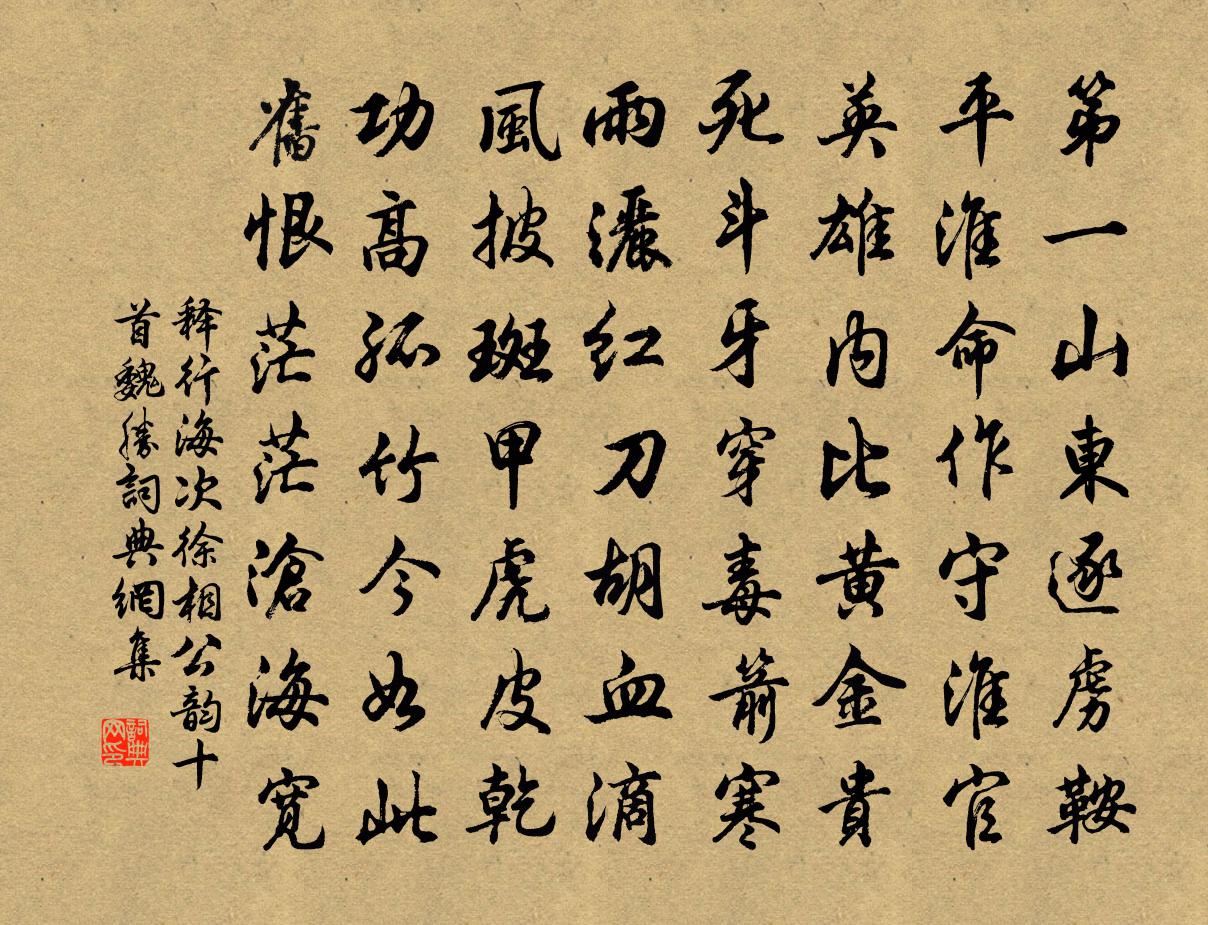 第一山東逐虜鞍
平淮命作守淮官
英雄内比黄金貴
死斗牙穿毒箭寒
雨灑红刀胡血滴
風披斑甲虎皮乾
功高孤竹今如此
舊恨茫茫滄海寛
释行海次徐相公韵十
首魏勝詞典網集
詞典
网印